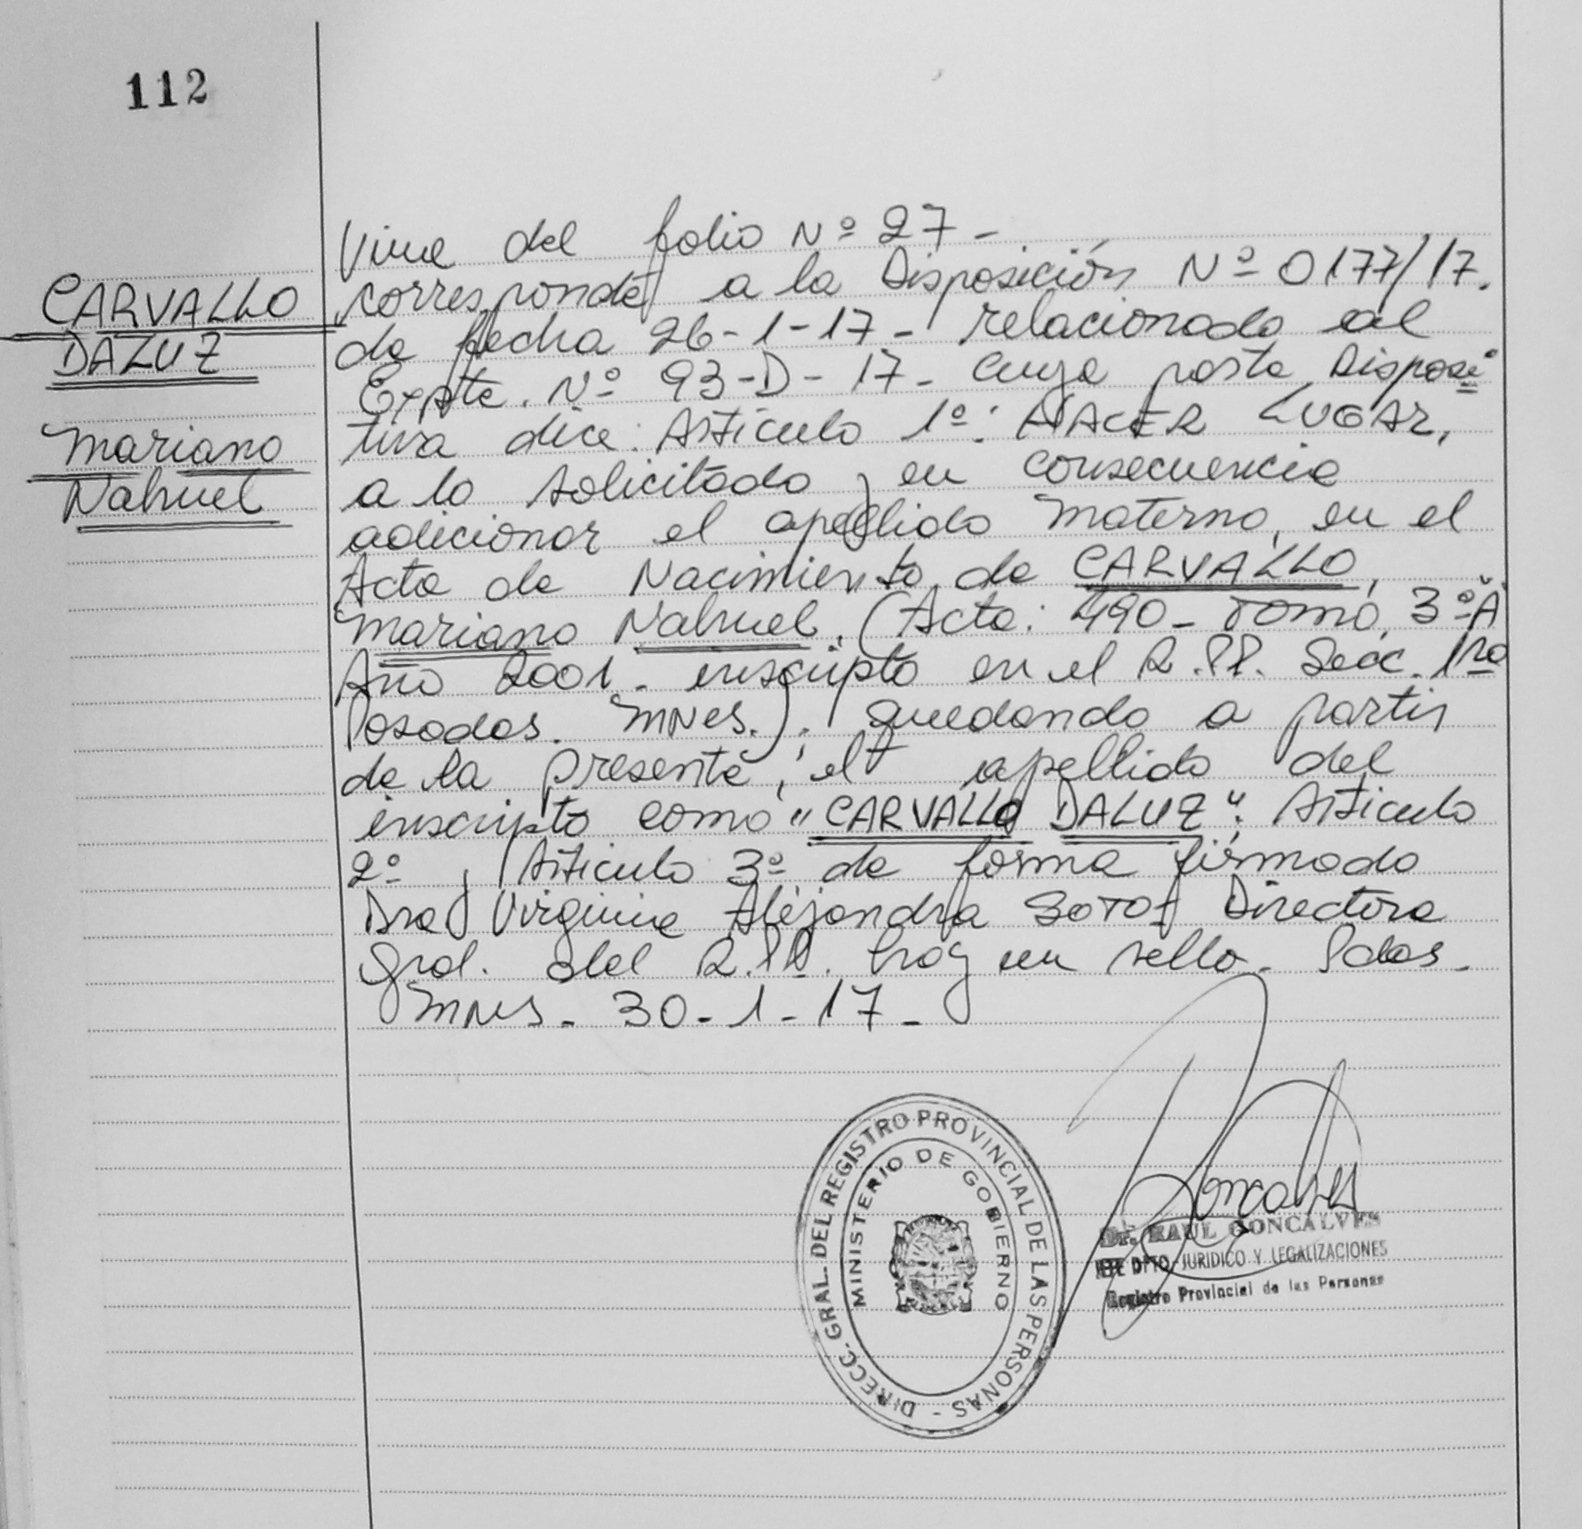 112
CARVALLO
DALUZ
Mariano
Nahuel
Viene del folio Nº 27 -
corresponde a la Disposición Nº 0177/17.
de fecha 26-1-17- relacionado al
Expte. Nº 93-D-17- cuya parte Disposi=
tiva dice: Artículo 1º: HACER LUGAR,
a lo solicitado y en consecuencia
adicionar el apellido materno, en el
Acta de Nacimiento de CARVALLO,
Mariano Nahuel. (Acta: 490- Tomo, 3º "A"
Año 2001. inscripto en el R.PP. Secc. 1ra
Posadas. Mnes.); quedando a partir
de la presente, el apellido del
inscripto como "CARVALLO DALUZ". Artículo
2º y Artículo 3º de forma firmado
Dra Virginia Alejandra SOTO Directora
Gral. del R.PP. hay un sello. Pdas.
Mnes. 30-1-17-
DIRECC. GRAL. DEL REGISTRO PROVINCIAL DE LAS PERSONAS -
MINISTERIO DE GOBIERNO
Dr. RAUL GONCALVES
JEFE DPTO JURIDICO Y LEGALIZACIONES
Registro Provincial de las Personas